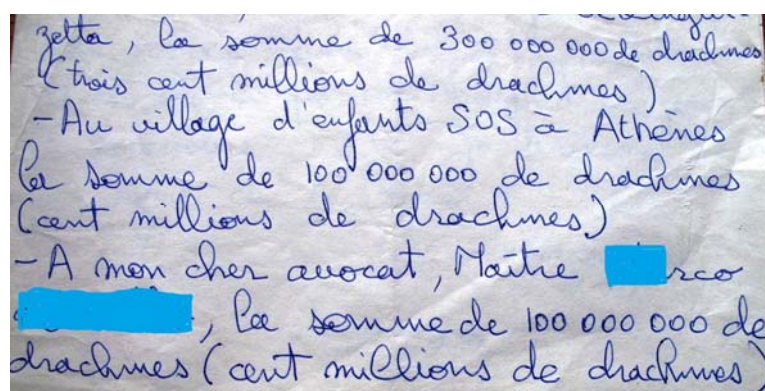 zetta, la somme de 300 000 000 de drachmes
(trois cent millions de drachmes)
-Au village d'enfants SOS à Athènes
la somme de 100 000 000 de drachmes
(cent millions de drachmes)
-A mon cher avocat, Maître rco
, la somme de 100 000 000 de
drachmes (cent millions de drachmes)